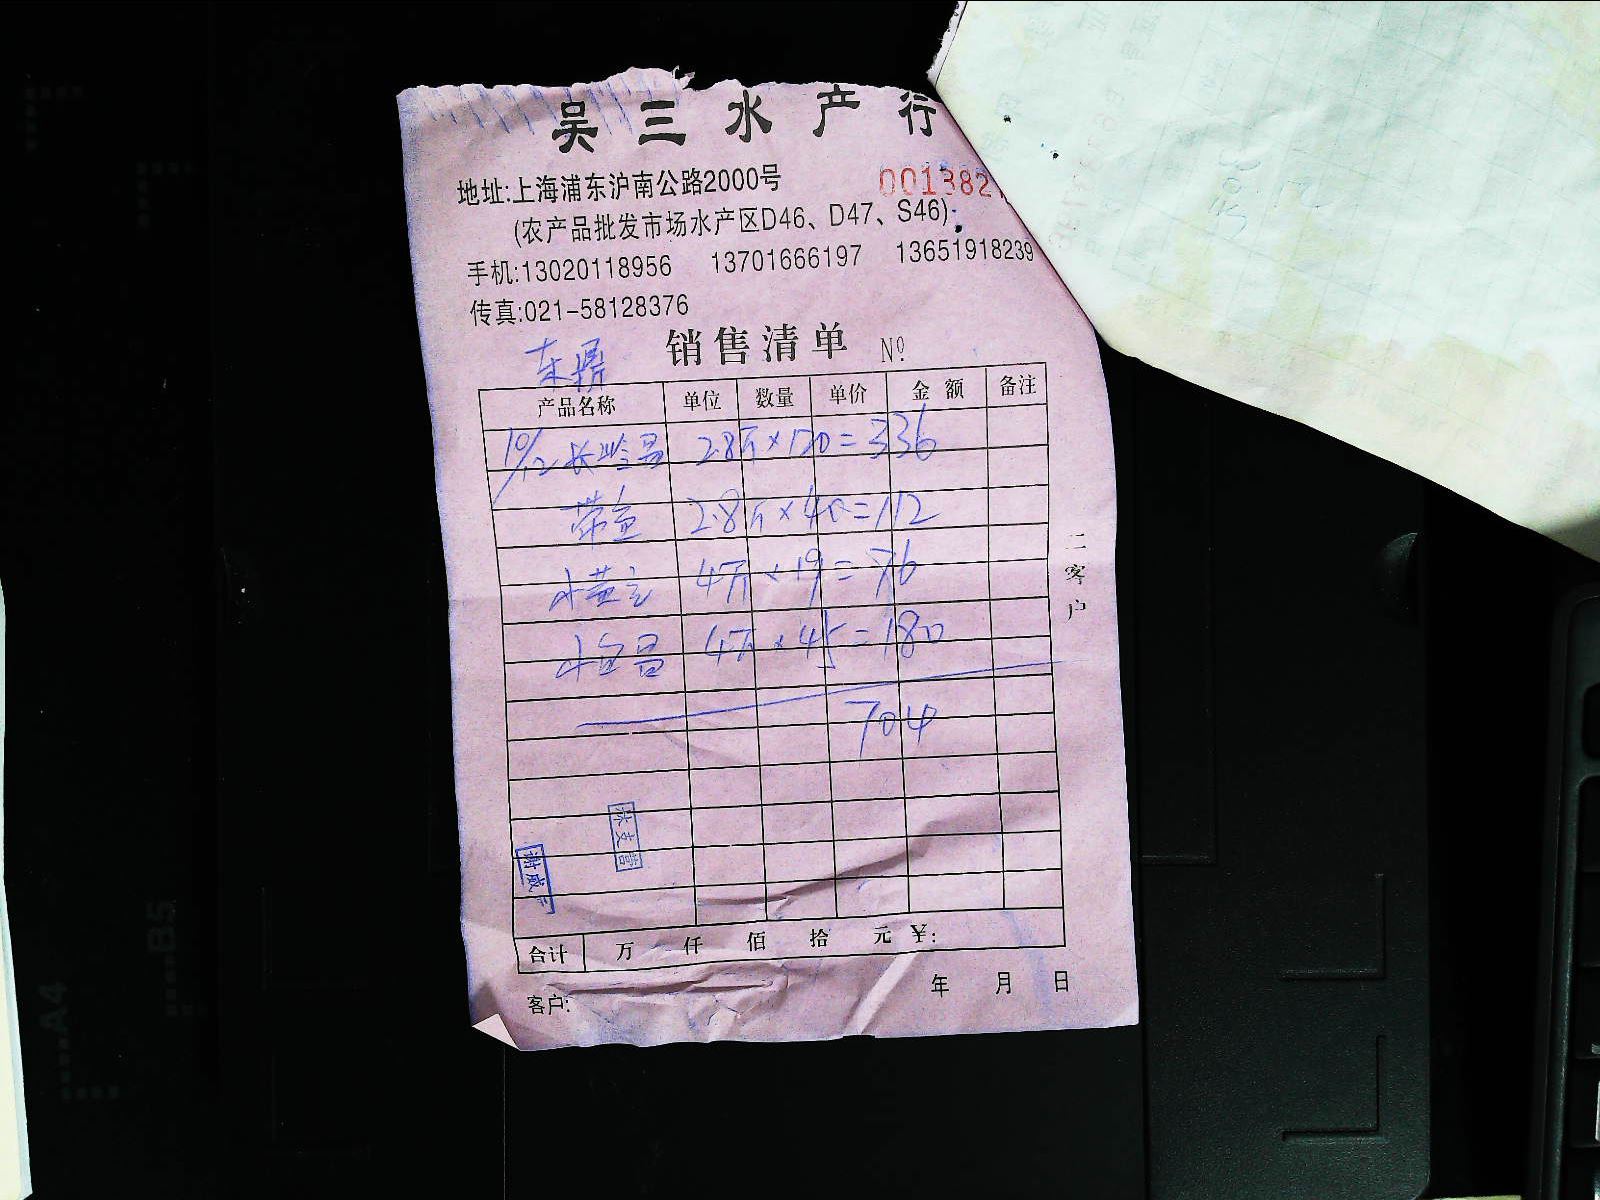 吴三水产行
地址:上海浦东沪南公路2000号
001382
(农产品批发市场水产区D46、D47、S46)
手机:13020118956 13701666197 13651918239
传真:021-58128376
东鼎
销售清单 Nº
产品名称 单位 数量 单价 金额 备注
10/12 2.8斤×120=336
带鱼 2.8斤×40=112
小黄鱼 4斤×19=76
小 4斤×45=180
704
二客户
谢威
合计 万 仟 佰 拾 元 ¥:
年 月 日
客户: